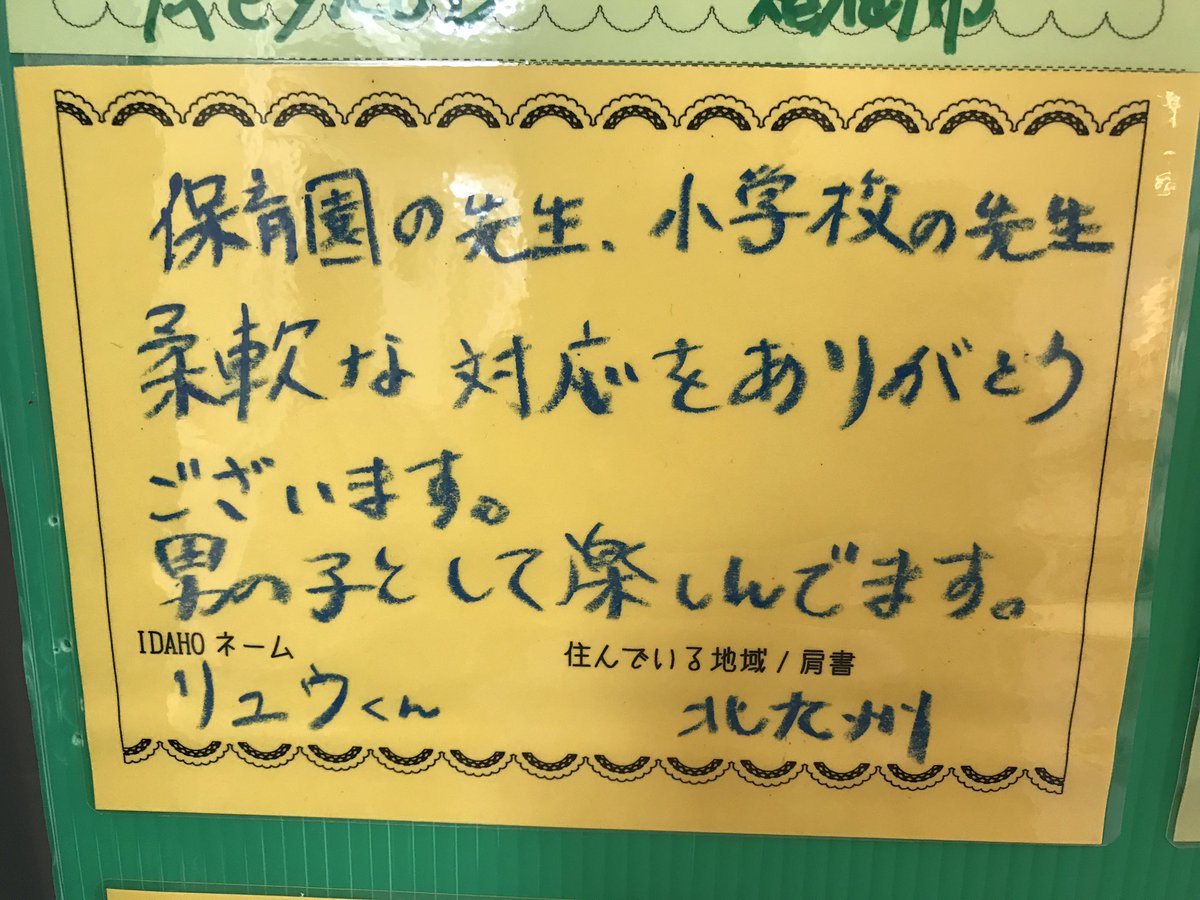 保育園の先生、小学校の先生
柔軟な対応をありがとう
ございます。
男の子として楽しんでます。
IDAHO ネーム
住んでいる地域 / 肩書
リュウくん
北九州